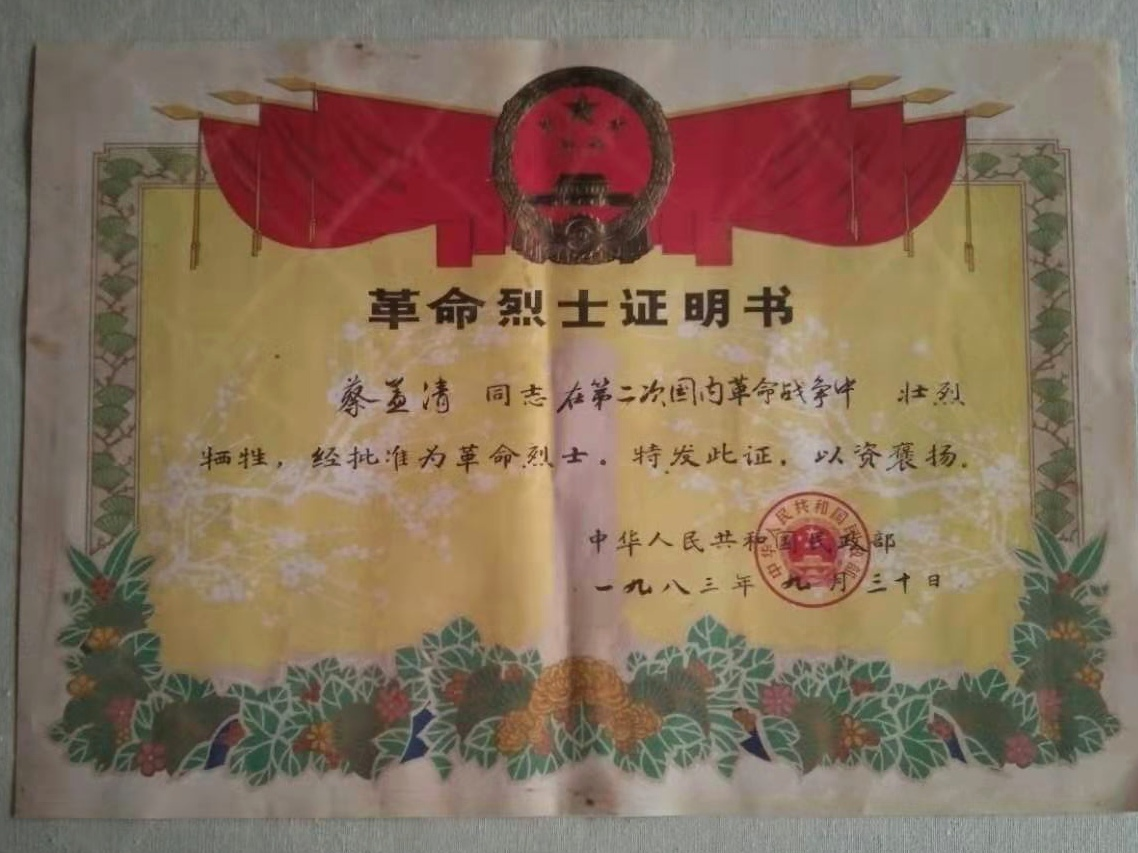 革命烈士证明书
蔡盖清 同志在第二次国内革命战争中 壮烈
牺牲，经批准为革命烈士。特发此证，以资褒扬。
中华人民共和国民政部
一九八三年九月三十日
中华人民共和国民政部